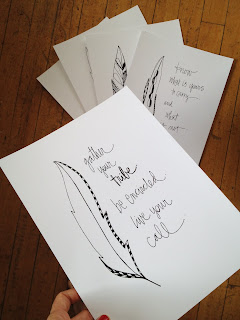 gather
your
tribe
be encircled
live your
call
know
what is yours
to carry
and
what
is not